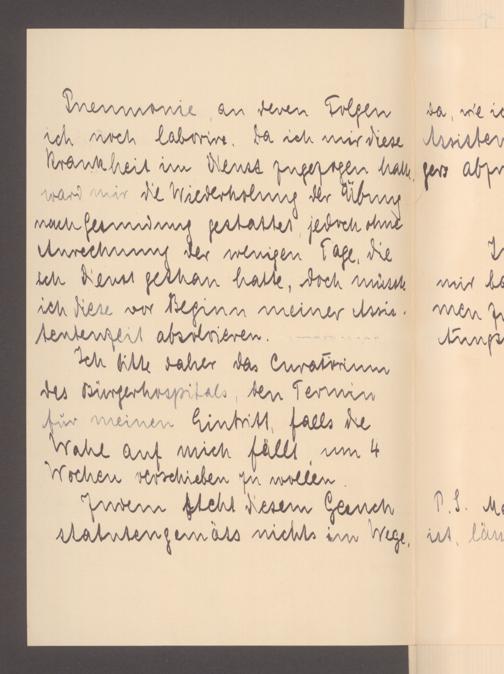 Pneumonie, an deren Folgen
ich noch laborire. Da ich mir diese
Krankheit im Dienst zugezogen hatte,
ward mir die Wiederholung der Übung
nach Gesundung gestattet, jedoch ohne
Anrechnung der wenigen Tage, die
ich Dienst gethan hatte, doch müsste
ich diese vor Beginn meiner Assis-
tentenzeit absolvieren.
Ich bitte daher das Curatorium
des Bürgerhospitals, den Termin
für meinen Eintritt, falls die
Wahl auf mich fällt, um 4
Wochen verschieben zu wollen.
Zudem steht diesem Gesuch
statutengemäss nichts im Wege,
da, wie ic
Assisten
gers abfr
mir
men
P.S.
ist, län